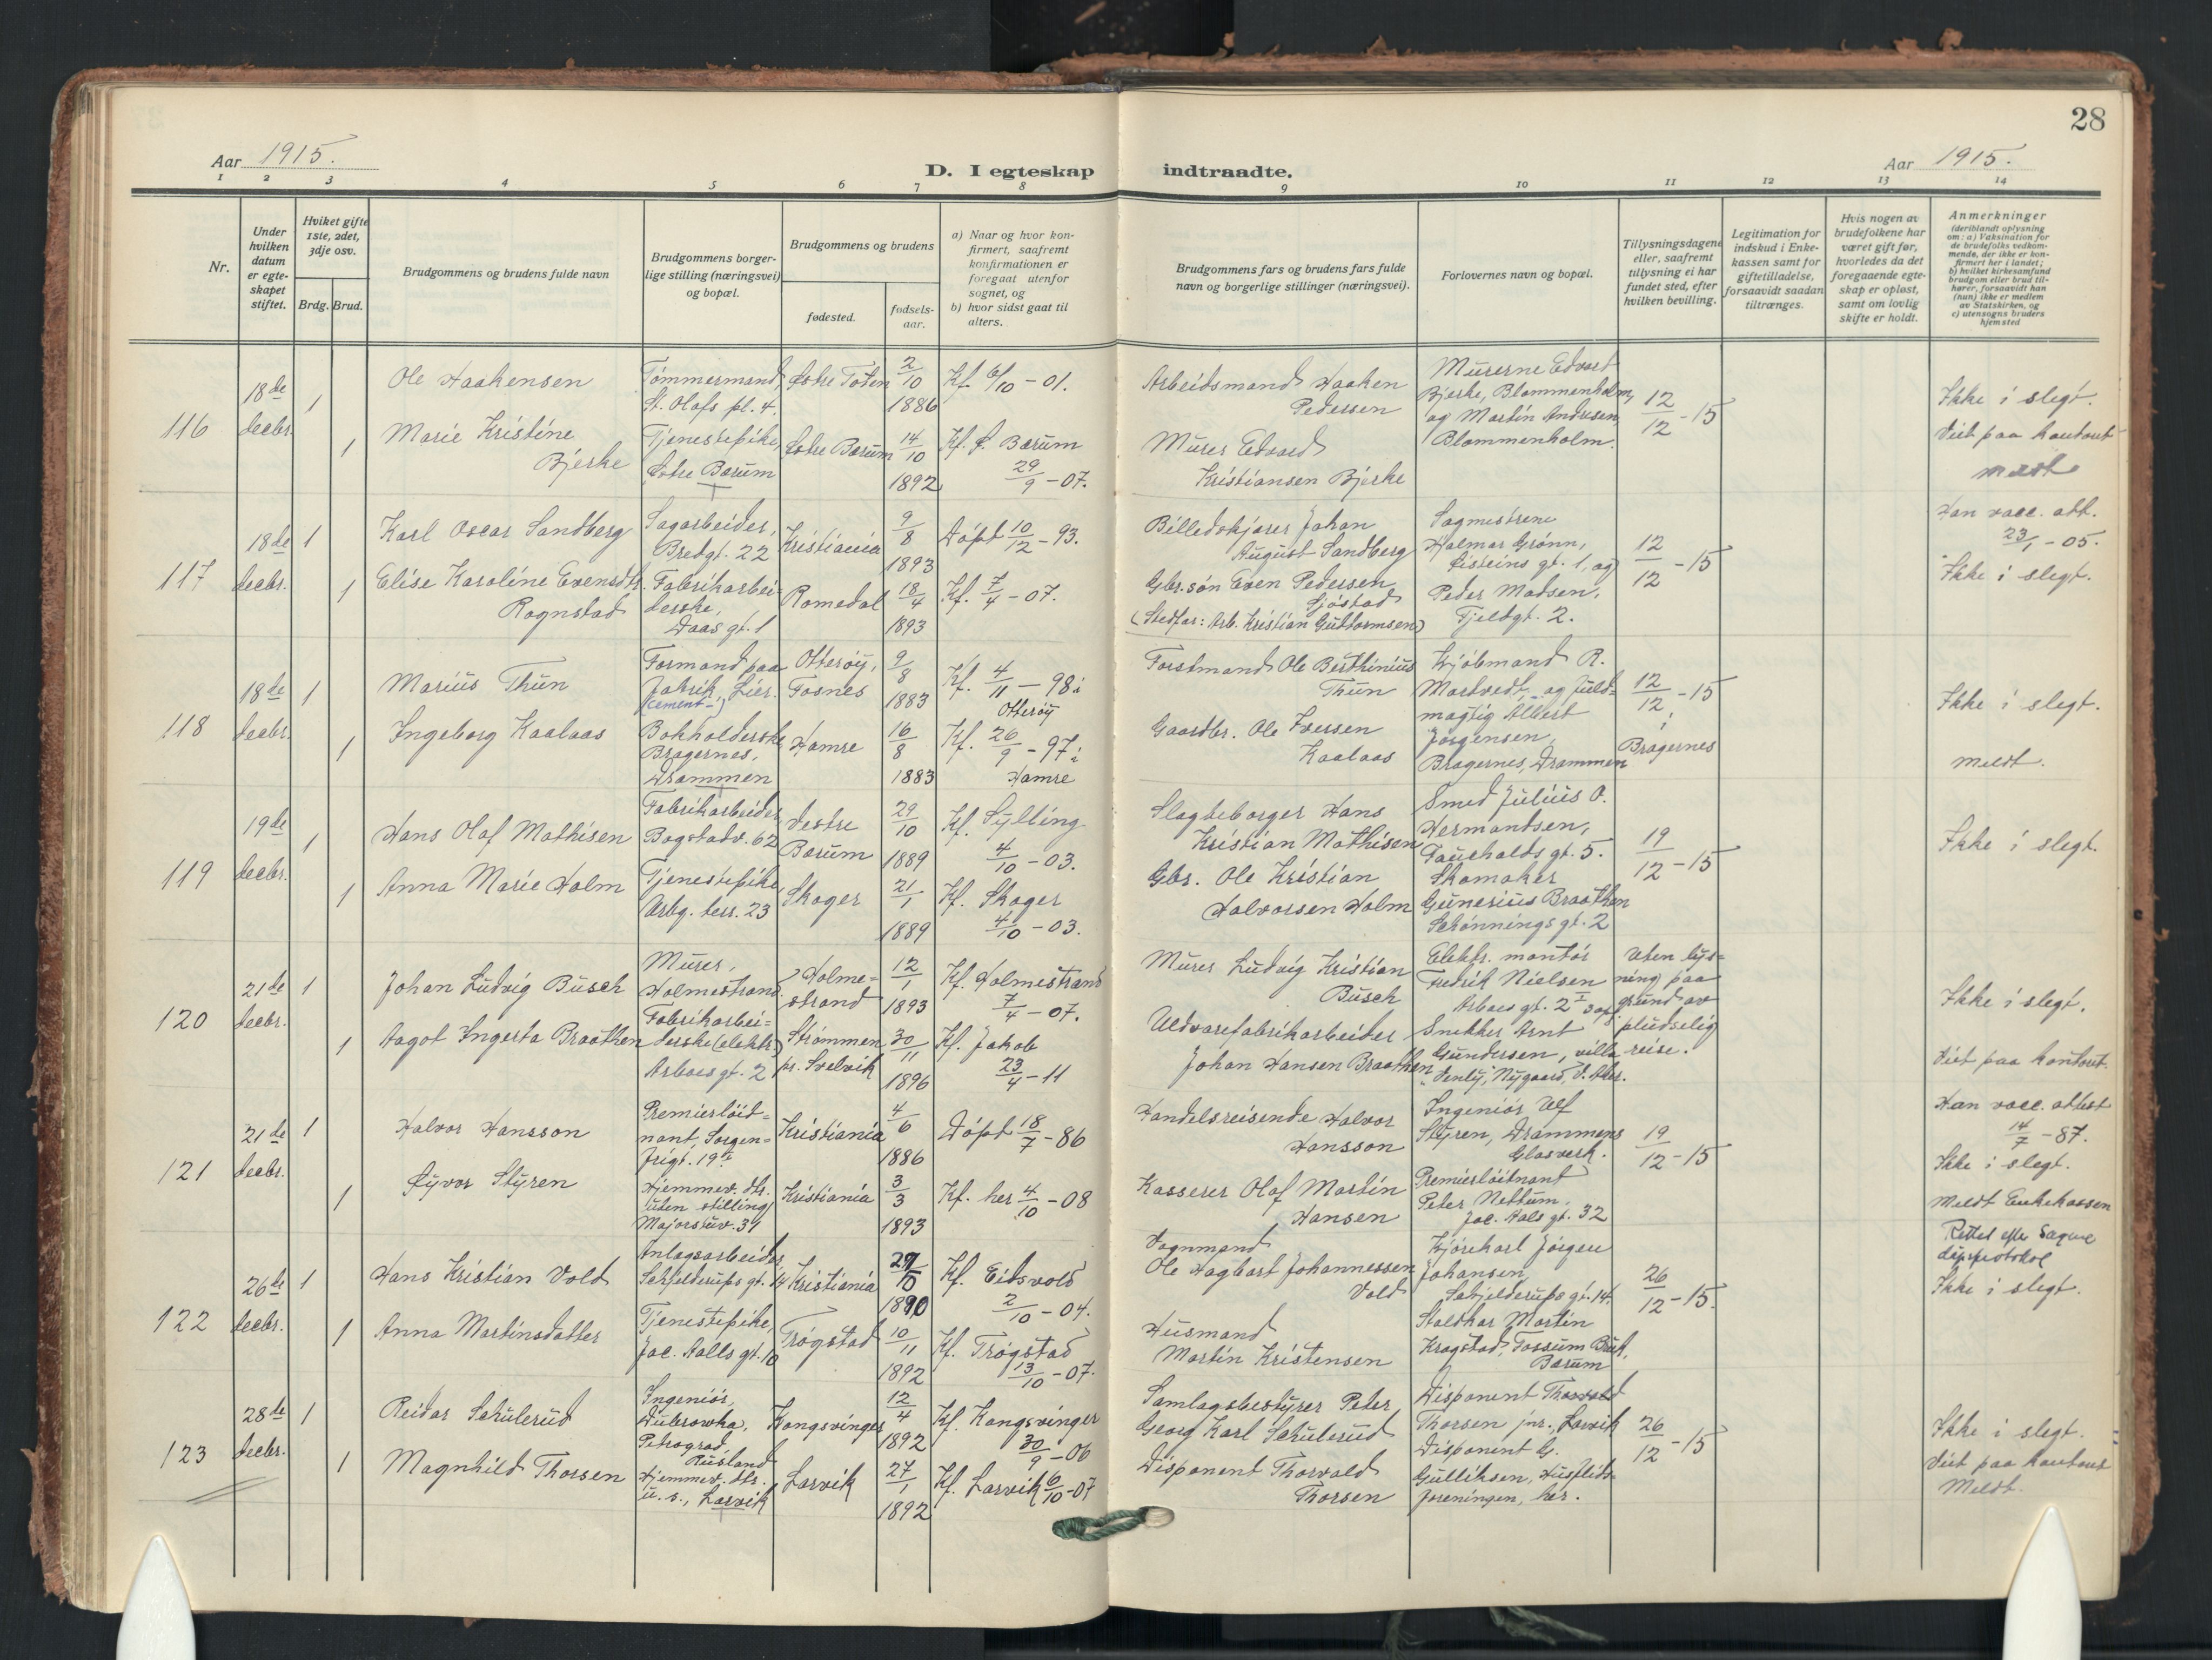 28
Aar 1915.
D. I egteskap indtraadte.
Aar 1915.
1 2 3 4 5 6 7 8 9 10 11 12 13 14
Nr.
Under hvilken datum er egte-skapet stiftet.
Hviket gifte 1ste, 2det, 3dje osv.
Brdg. Brud.
Brudgommens og brudens fulde navn
Brudgommens borger-lige stilling (næringsvei) og bopæl.
Brudgommens og brudens
fødested.
fødsels-aar.
a) Naar og hvor kon-firmert, saafremt konfirmationen er foregaat utenfor sognet, og
b) hvor sidst gaat til alters.
Brudgommens fars og brudens fars fulde navn og borgerlige stillinger (næringsvei).
Forlovernes navn og bopæl.
Tillysningsdagene eller, saafremt tillysning ei har fundet sted, efter hvilken bevilling.
Legitimation for indskud i Enke-kassen samt for giftetilladelse, forsaavidt saadan tiltrænges.
Hvis nogen av brudefolkene har været gift før, hvorledes da det foregaaende egte-skap er opløst, samt om lovlig skifte er holdt.
Anmerkninger (deriblandt oplysning om: a) Vaksination for de brudefolks vedkom-mende, der ikke er kon-firmert her i landet; b) hvilket kirkesamfund brudgom eller brud til-hører, forsaavidt han (hun) ikke er medlem av Statskirken, og c) utensogns bruders hjemsted
116
18de decbr.
1
Ole Haakensen
Tømmermand, St. Olafs pl. 4.
Østre Toten
2/10 1886
Kf 6/10 - 01.
Arbeidsmand Haaken Pedersen
Murerne Edvard Bjerke, Blommenholm, og Martin Andresen, Blommenholm.
12/12 - 15
Ikke i slegt.
Viet paa kontoret
meldt
1
Marie Kristine Bjerke
Tjenestepike, Østre Bærum
Østre Bærum
14/10 1892
Kf. Ø. Bærum 29/9 - 07.
Murer Edvard Kristiansen Bjerke
117
18de decbr.
1
Karl Oscar Sandberg
Sagarbeider, Bredgt. 22
Kristiania
9/8 1893
Døpt 10/12 - 93.
Billedskjærer Johan August Sandberg
Sagmestrene Halmar Grønn, Eisteins gt. 1, og Peder Madsen, Fjeldgt. 2.
12/12 - 15
Han vacc. att. 23/1 - 05.
Ikke i slegt.
1
Elise Karoline Evensdtr. Rognstad
Fabrikarbei-derske, Daas gt. 1
Romedal
18/4 1893
Kf. 7/4 - 07.
Gbr.søn Even Pedersen Sjøstad
(Stedfar: Arb. Kristian Guttormsen)
118
18de decbr.
1
Marius Thun
Formand paa fabrik, Lier. (cement-)
Otterøy, Fosnes
9/8 1883
Kf. 4/11 - 98 i Otterøy
Forstmand Ole Berthinius Thun
Kjøbmand R. Mortvedt, og fuld-mægtig Albert Jørgensen, Bragernes, Drammen
12/12 - 15 i Bragernes
Ikke i slegt.
meldt.
1
Ingeborg Kaalaas
Bokholderske, Bragernes, Drammen
Hamre
16/8 1883
Kf. 26/9 - 97 i Hamre
Gaardbr. Ole Iversen Kaalaas
119
19de decbr.
1
Hans Olaf Mathisen
Fabrikarbeider Bogstadv. 62
Vestre Bærum
29/10 1889
Kf. Sylling 4/10 - 03.
Slagteborger Hans Kristian Mathisen
Smed Julius O. Hermandsen, Fauchalds gt. 5.
Skomaker Gunerius Braathen Schønnings gt. 2
19/12 - 15
Ikke i slegt.
1
Anna Marie Holm
Tjenestepike, Arbg. terr. 23
Skoger
21/1 1889
Kf. Skoger 4/10 - 03.
Gbr. Ole Kristian Halvorsen Holm
120
21de decbr.
1
Johan Ludvig Busch
Murer, Holmestrand
Holme-strand
12/1 1893
Kf. Holmestrand 7/4 - 07.
Murer Ludvig Kristian Busch
Elektr. montør Fredrik Nielsen Arboes gt. 2 I og Snekker Arnt Gundersen, villa "Venly", Nygaard, V. Aker.
Uten lys-ning paa grund av pludselig reise.
Ikke i slegt.
Viet paa kontoret.
1
Aagot Ingerta Braathen
Fabrikarbei-derske (elektr.) Arboes gt. 2
Strømmen pr. Svelvik
30/11 1896
Kf. Jakob 23/4 - 11
Uldvarefabrikarbeider Johan Hansen Braathen
121
21de decbr.
1
Halvor Hansson
Premierløit-nant, Sorgen-frigt. 19
Kristiania
4/6 1886
Døpt 18/7 - 86
Handelsreisende Halvor Hansson
Ingeniør Ulf Styren, Drammens Glasverk.
Premierløitnant Peter Nettum, Jac. Aals gt. 32
19/12 - 15
Han vacc. attest 14/7 - 87.
Ikke i slegt.
Meldt Enkekassen
1
Øyvor Styren
Hjemmev. dtr. uten stilling, Majorstuv. 31
Kristiania
3/3 1893
Kf. her 4/10 - 08
Kasserer Olaf Martin Hansen
122
26de decbr.
1
Hans Kristian Vold
Anlægsarbeider Schjelderups gt. 14
Kristiania
27/10 1890
Kf. Eidsvold 2/10 - 04.
Vognmand Ole Hagbart Johannessen Vold
Kjørekarl Jørgen Johansen, Schjelderups gt. 14.
Staldkar Martin Kragstad, Fossum Bruk, Bærum
26/12 - 15.
Rettet efter Sagene døpsprotokol
Ikke i slegt.
1
Anna Martinsdatter
Tjenestepike, Jac. Aalls gt. 10
Trøgstad
10/11 1892
Kf. Trøgstad 13/10 - 07.
Husmand Martin Kristensen
123
28de decbr.
1
Reidar Schulerud
Ingeniør, Dubrowka, Petrograd, Rusland
Kongsvinger
12/4 1892
Kf. Kongsvinger 30/9 - 06
Samlagsbestyrer Peter Georg Karl Schulerud
Disponent Thorvald Thorsen jnr., Larvik
Disponent G. Gulliksen, Husflids-foreningen, her.
26/12 - 15
Ikke i slegt.
Viet paa kontoret
Meldt.
1
Magnhild Thorsen
Hjemmev. dtr. u. s., Larvik
Larvik
27/1 1892
Kf. Larvik 6/10 - 07
Disponent Thorvald Thorsen